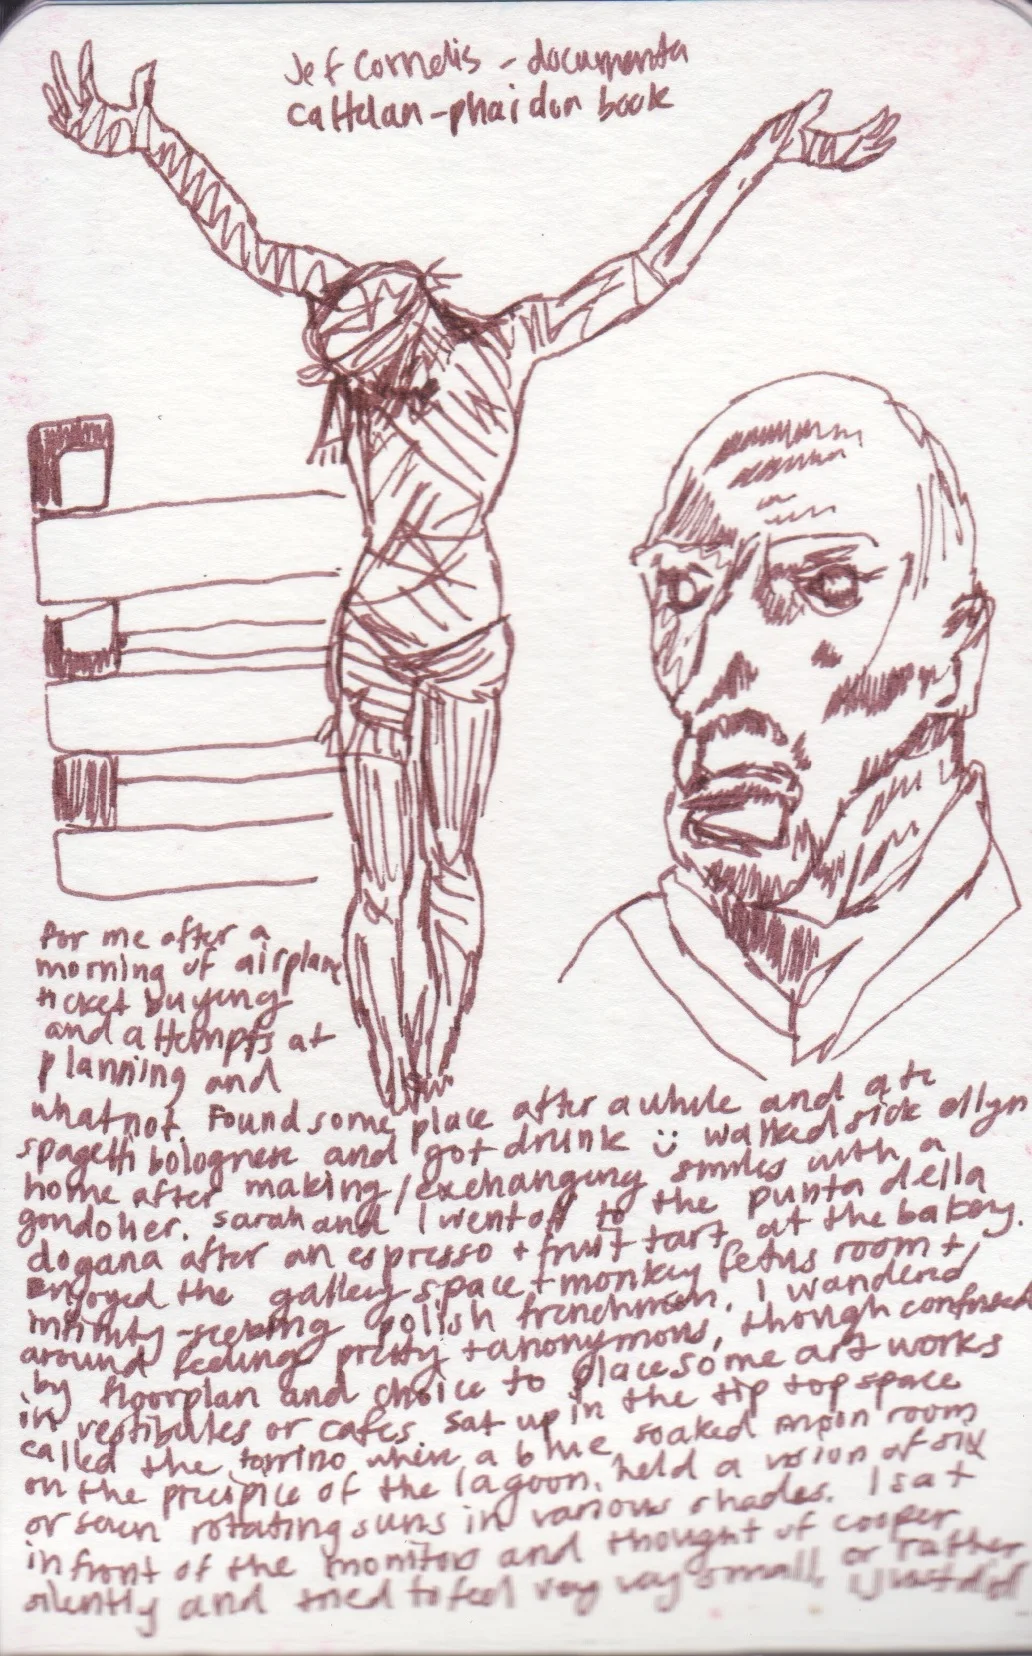 Jef Cornelis - documenta
Cattelan - phaidon book
For me after a
morning of airplane
ticket buying
and attempts at
planning and
whatnot. Found some place after a while and ate
spagetti bolognese and got drunk :) walked side
home after making/exchanging smiles with a
gondolier. Sarah and I went off to the punta della
dogana after an espresso + fruit tart at the bakery.
Enjoyed the gallery space + monkey fetus room +
infinity-seeking polish frenchman. I wandered
around feeling pretty + anonymous, though confused
by floorplan and choice to place some art works
in vestibules or cafes. Sat up in the tip top space
called the torrino where a blue soaked moon room
on the precipice of the lagoon, held a vision of six
or seven rotating suns in various shades. I sat
in front of the monitors and thought of cooper
silently and tried to feel very very small, or rather I just did